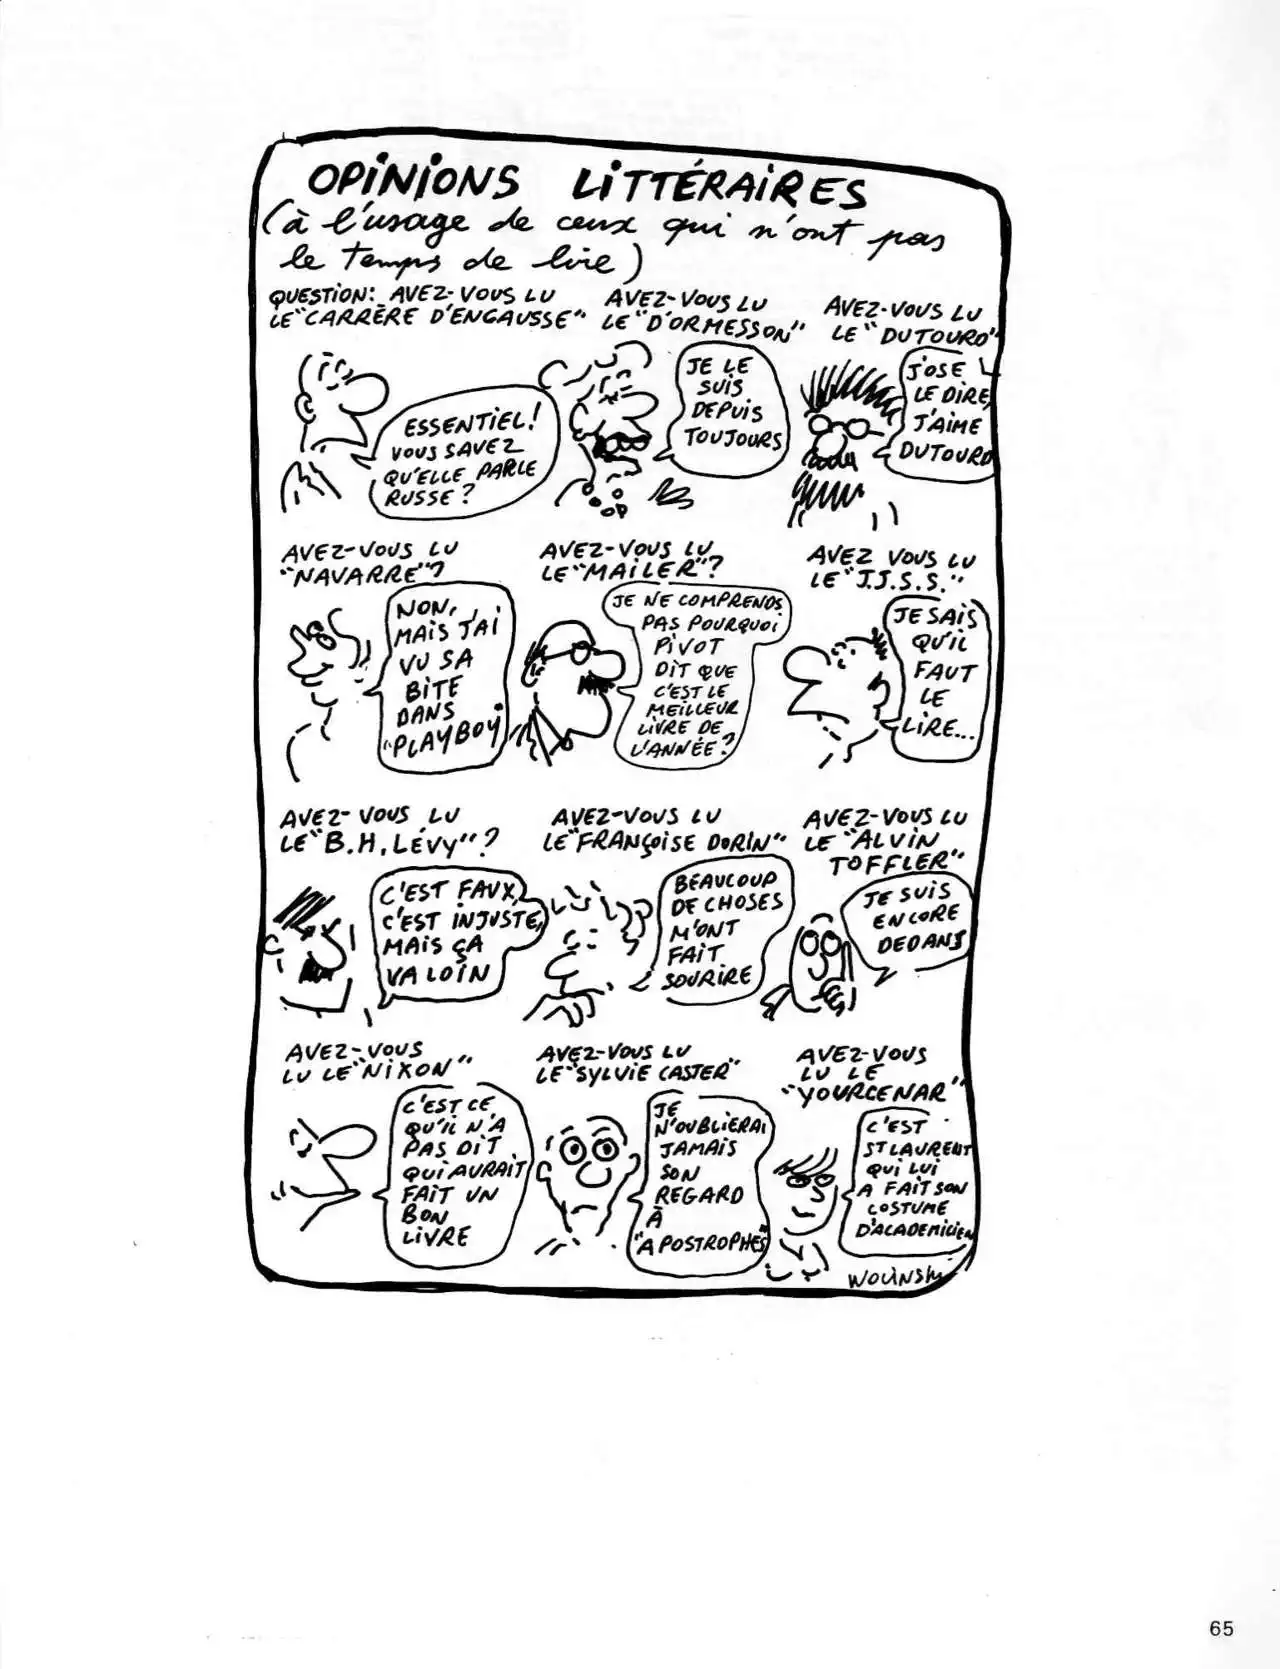 OPINIONS LITTÉRAIRES
(à l'usage de ceux qui n'ont pas
le temps de lire)
QUESTION: AVEZ-VOUS LU
LE "CARRÈRE D'ENGAUSSE"
ESSENTIEL!
VOUS SAVEZ
QU'ELLE PARLE
RUSSE?
AVEZ-VOUS LU
LE "D'ORMESSON"
JE LE
SUIS
DEPUIS
TOUJOURS
AVEZ-VOUS LU
LE "DUTOURD"
J'OSE
LE DIRE,
J'AIME
DUTOURD
AVEZ-VOUS LU
"NAVARRE"?
NON,
MAIS J'AI
VU SA
BITE
DANS
"PLAYBOY"
AVEZ-VOUS LU
LE "MAILER"?
JE NE COMPRENDS
PAS POURQUOI
PIVOT
DIT QUE
C'EST LE
MEILLEUR
LIVRE DE
L'ANNÉE?
AVEZ VOUS LU
LE "J.J.S.S."
JE SAIS
QU'IL
FAUT
LE
LIRE...
AVEZ-VOUS LU
LE "B.H. LÉVY"?
C'EST FAUX,
C'EST INJUSTE,
MAIS ÇA
VA LOIN
AVEZ-VOUS LU
LE "FRANÇOISE DORIN"
BEAUCOUP
DE CHOSES
M'ONT
FAIT
SOURIRE
AVEZ-VOUS LU
LE "ALVIN
TOFFLER"
JE SUIS
ENCORE
DEDANS
AVEZ-VOUS
LU LE "NIXON"
C'EST CE
QU'IL N'A
PAS DIT
QUI AURAIT
FAIT UN
BON
LIVRE
AVEZ-VOUS LU
LE "SYLVIE CASTER"
JE
N'OUBLIERAI
JAMAIS
SON
REGARD
À
"APOSTROPHES"
AVEZ-VOUS
LU LE
"YOURCENAR"
C'EST
ST LAURENT
QUI LUI
A FAIT SON
COSTUME
D'ACADEMICIEN
WOLINSKI
65